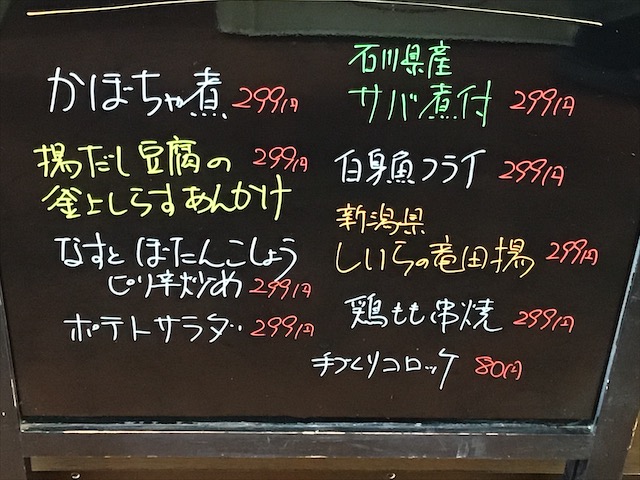 かぼちゃ煮 299円
揚だし豆腐の 299円
釜上しらすあんかけ
なすと ぼたんこしょう
ピリ辛炒め 299円
ポテトサラダ 299円
石川県産
サバ煮付 299円
白身魚フライ 299円
新潟県
しいらの竜田揚 299円
鶏もも串焼 299円
手づくりコロッケ 80円